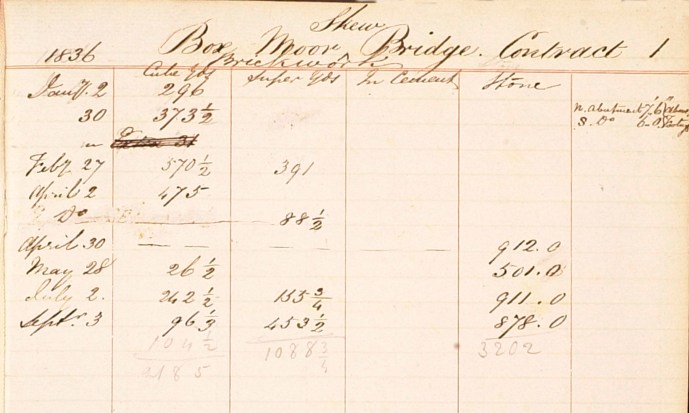 Skew
1836 Box Moor Bridge. Contract 1
Brickwork
Cube Yds Super Yds In Cement Stone
Jany. 2 296
30 373½
N. Abutment 7.6
S. Do 6.0
Feby. 27 570½ 391
April 2 475
Do 88½
April 30 — — — — 912.0
May 28 26½ 501.0
July 2. 242½ 155¾
911.0
Septr. 3 96⅓ 453½ 878.0
104½ 1088¾ 3202
2185